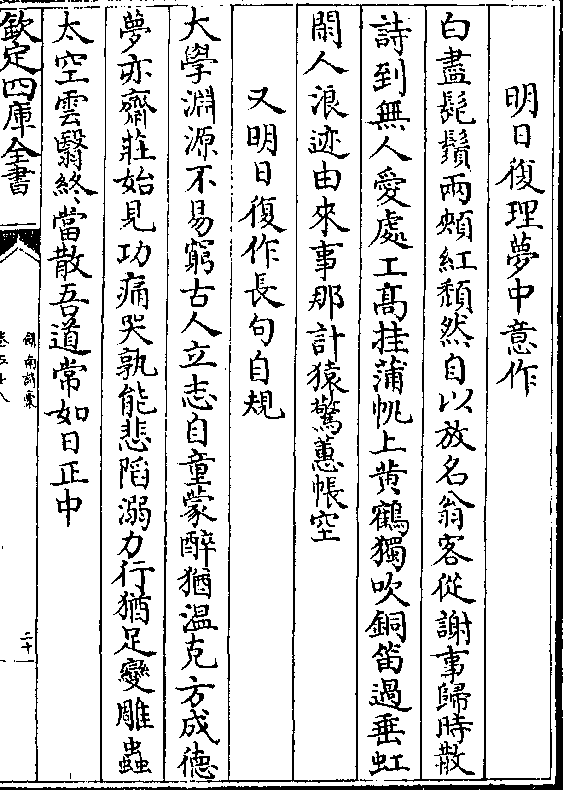 明日復理夢中意作
白盡髭鬚兩頰紅頽然自以放名翁客從謝事歸時散
詩到無人愛處工髙挂蒲帆上黄鶴獨吹銅笛過垂虹
閒人浪迹由來事那計猿驚蕙帳空
又明日復作長句自規
大學淵源不易窮古人立志自童蒙醉猶溫克方成德
夢亦齋莊始見功痛哭孰能悲陷溺力行猶足變雕蟲
太空雲翳終當散吾道常如日正中
欽定四庫全書
劍南詩稾
卷五十八
二十